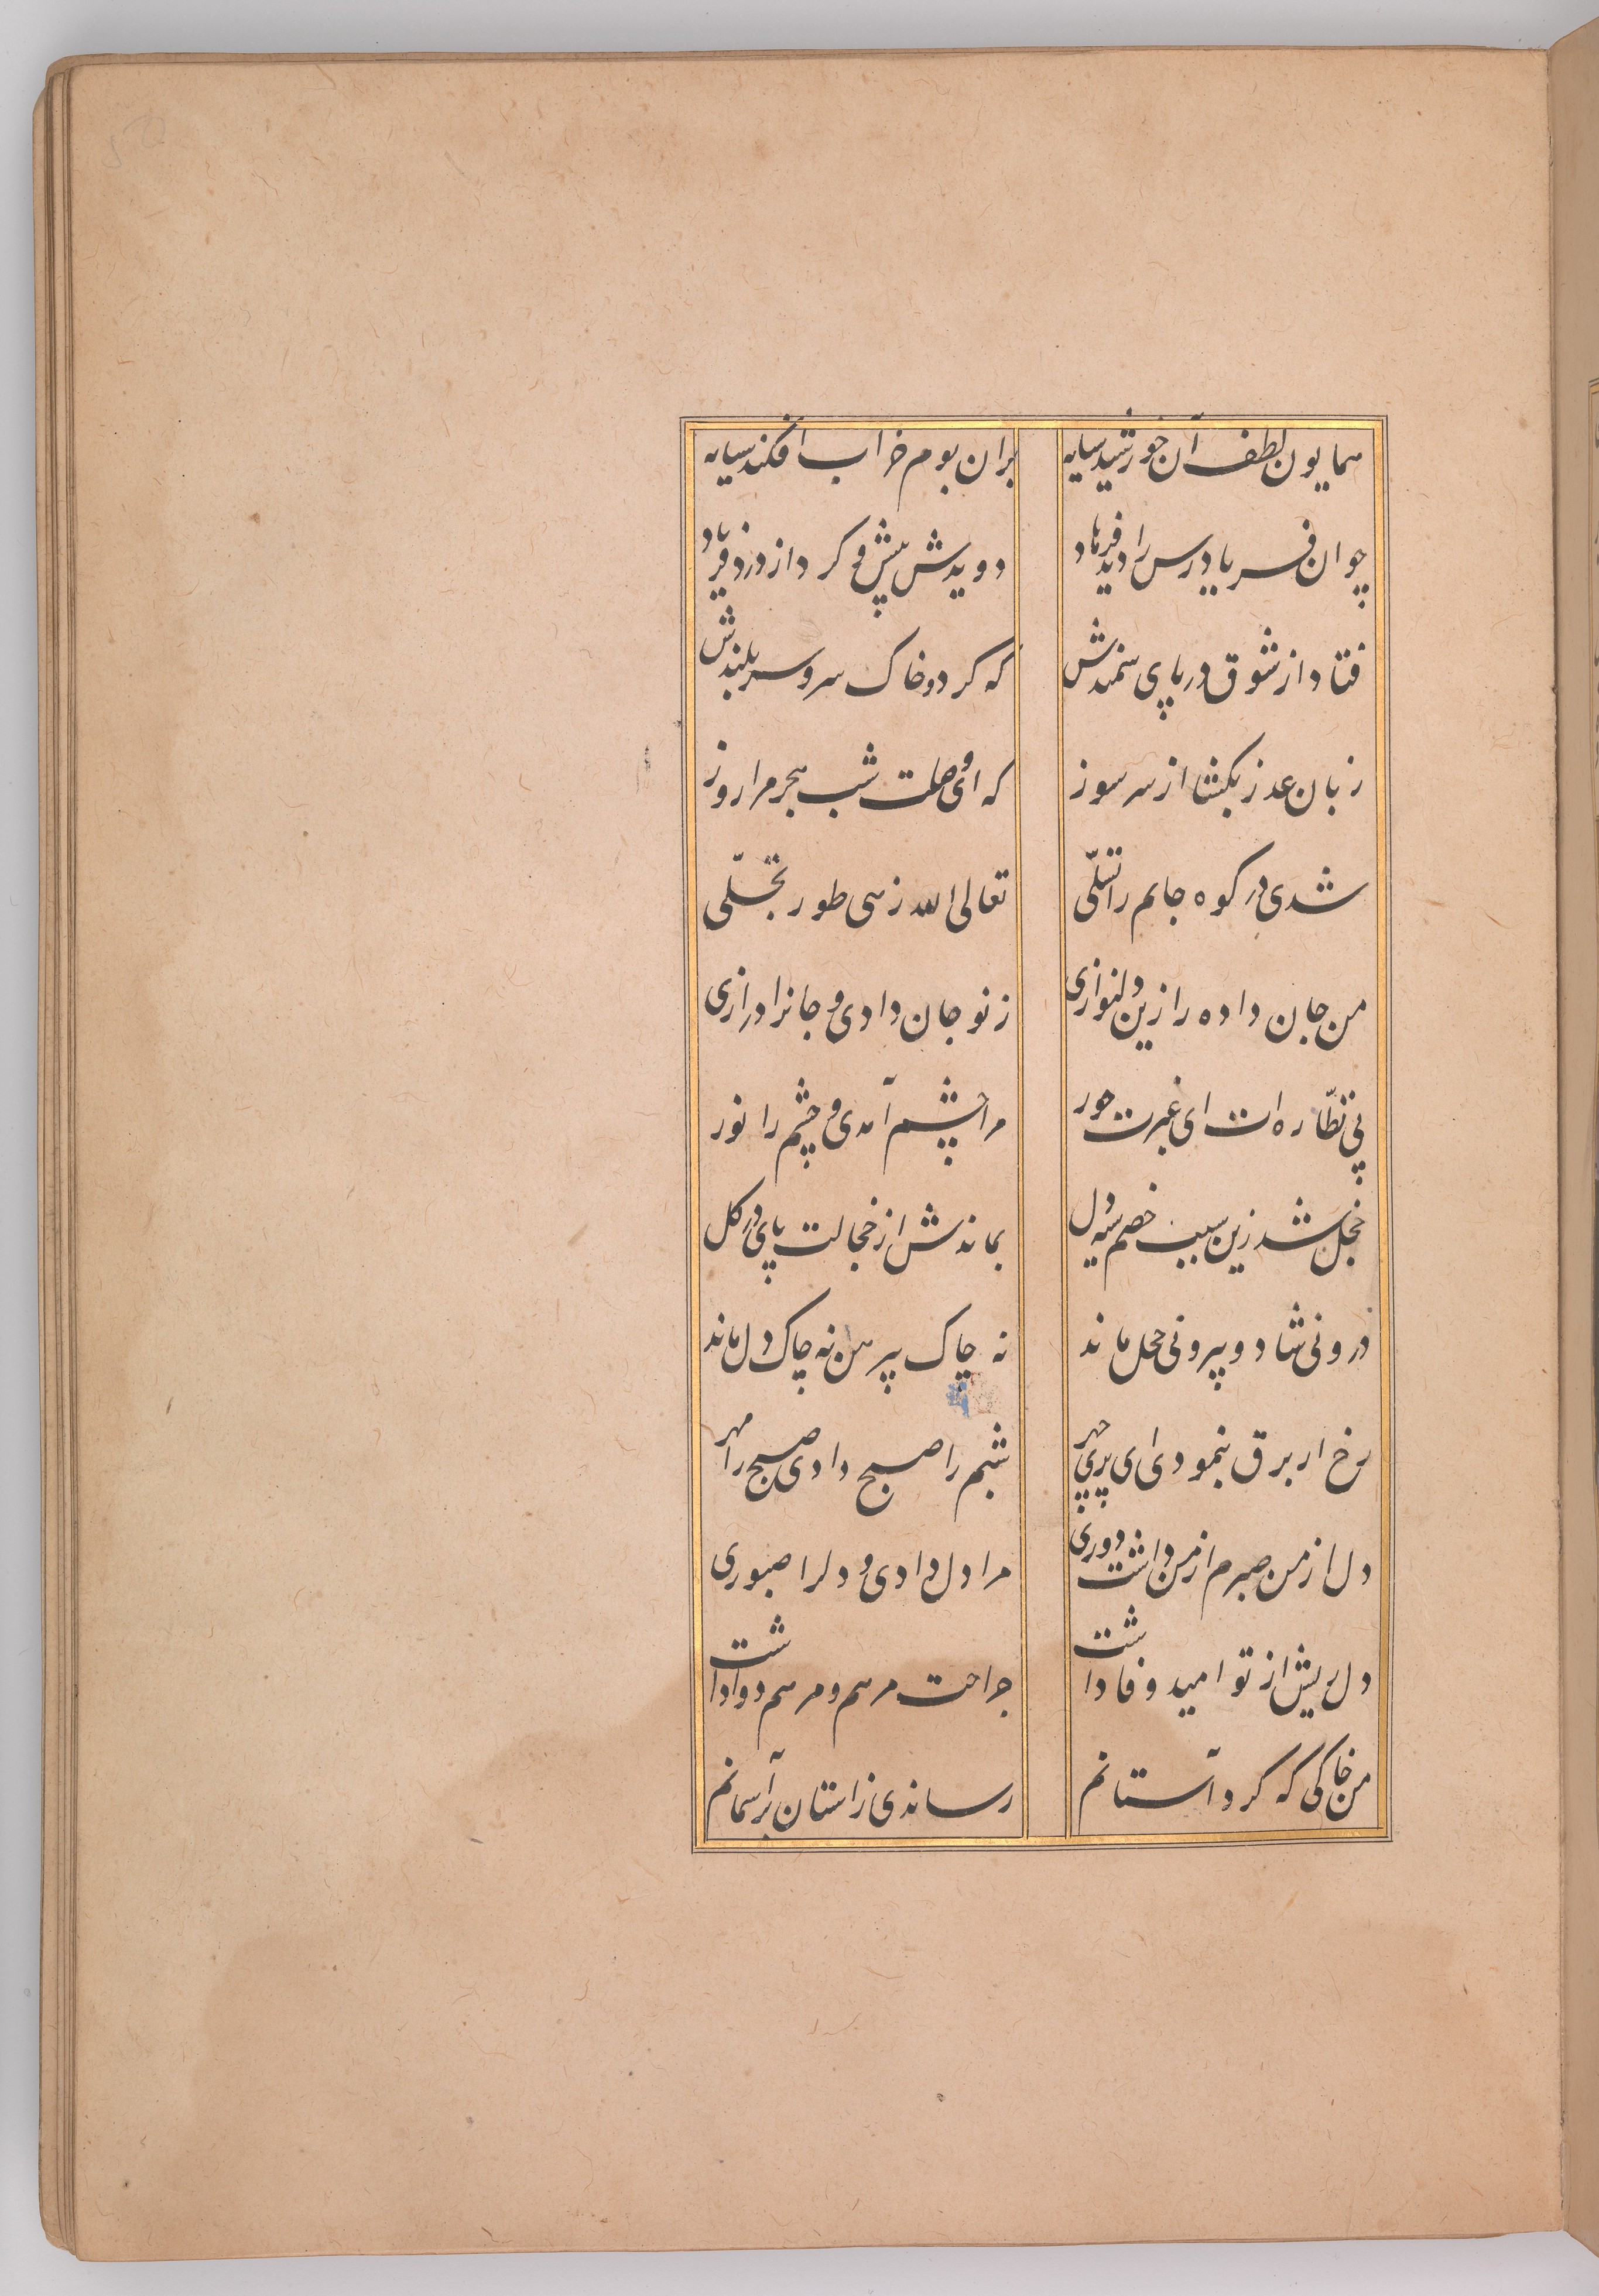 همایون لطف آن خورشید سایه
بران بوم خراب افکند سایه
چو ان فریادرس را دید فرهاد
دویدش پیش و کرد از درد فریاد
فتاد از شوق در پای سمندش
که کردد خاک سرو سربلندش
زبان عذر بکشاد از سر سوز
که ای وصلت شب هجر مرا روز
شدی در کوه جانم را تسلّی
تعالی الله زهی طور تجلّی
من جان داده را زین دلنوازی
ز نو جان دادی و جانرا درازی
پی نظّاره ات ای غیرت حور
مرا چشم آمدی و چشم را نور
خجل شد زین سبب خصم سیه دل
بماندش از خجالت پای در کل
درونی شاد و بیرونی خجل ماند
نه چاک پیرهن نه چاک دل ماند
رخ از برق بنمودی ای پری چهر
شبم را صبح دادی صبح را مهر
دل از من صبرم از من داشت دوری
مرا دل دادی و دلرا صبوری
دل ریش از تو امید وفا داشت
جراحت مرهم و مرهم دوا داشت
من خاکی که کرد آستانم
رساندی زاستان بر آسمانم